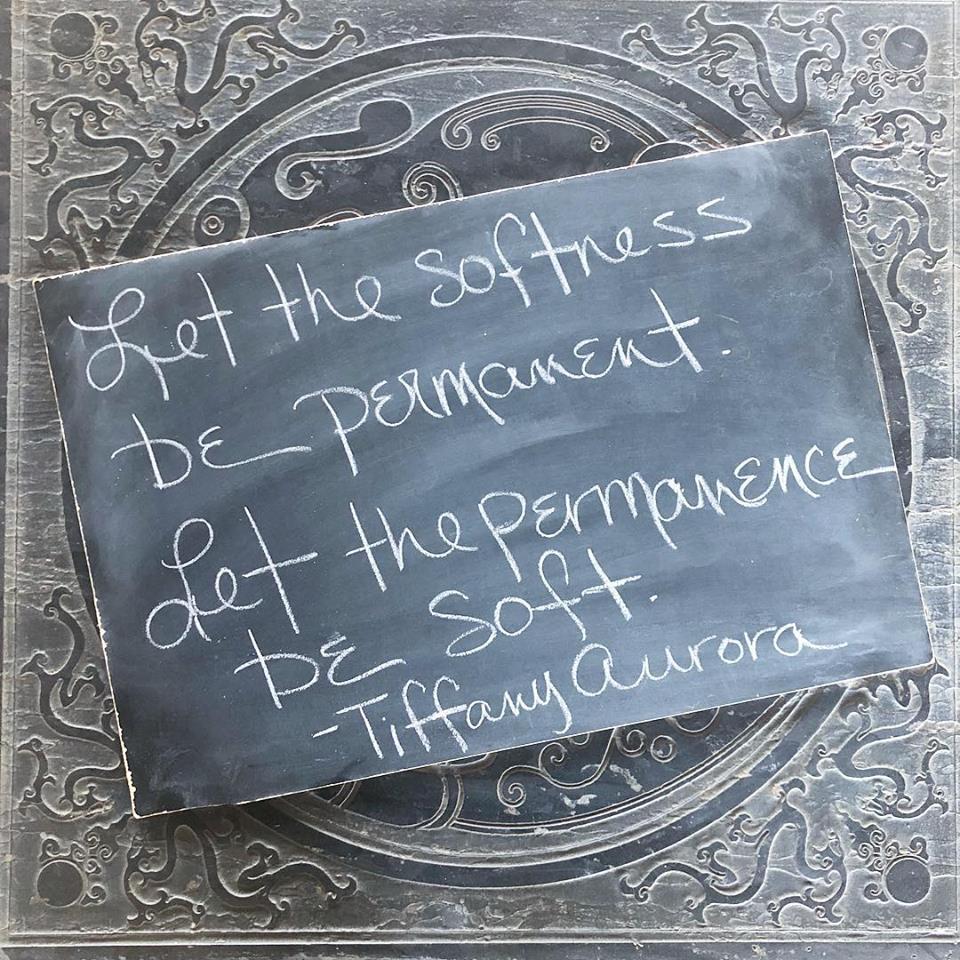 Let the softness
be permanent.
Let the permanence
be soft.
-Tiffany Aurora